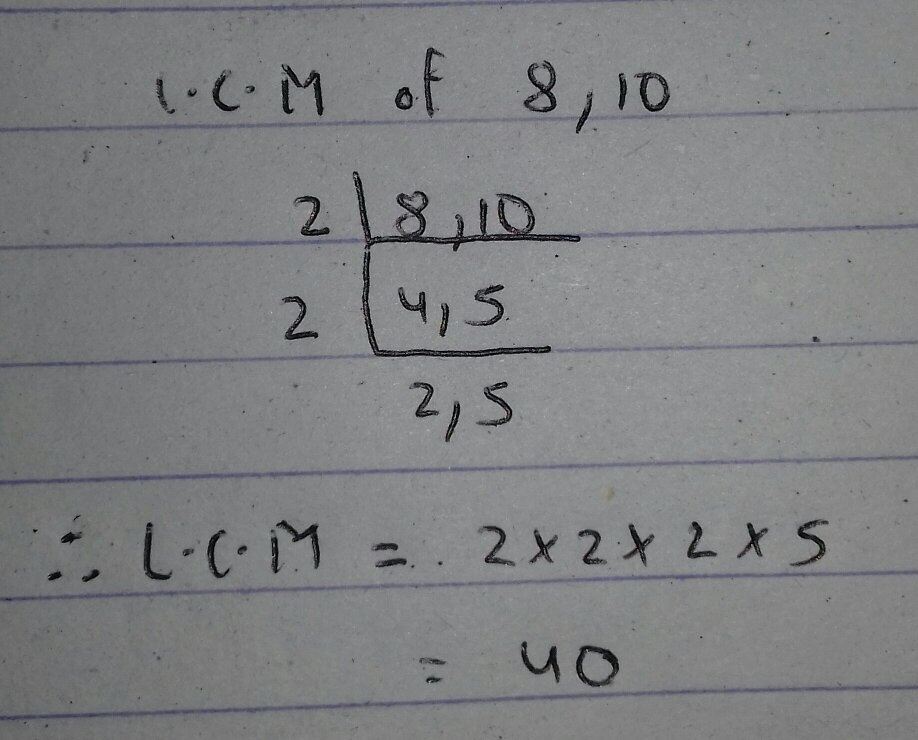 L.C.M of 8,10
2 | 8,10
2 | 4,5
2,5
∴ L.C.M = 2 × 2 × 2 × 5
= 40